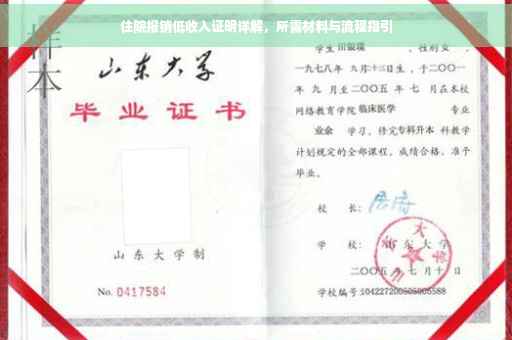 住院报销低收入证明详解，所需材料与流程指引
样
本
山东大学
毕业证书
山东大学制
No. 0417584
学生
性别女，
一九七八年 九月十三日生，于二〇〇一
年 九 月至二〇〇五 年 七 月在本校
网络教育学院临床医学 专业
业余 学习，修完专科升本 科教学
计划规定的全部课程，成绩合格，准予
毕业。
校 长：
学 校：山东大学
二〇〇五年七月十日
学校编号:104227200505005588